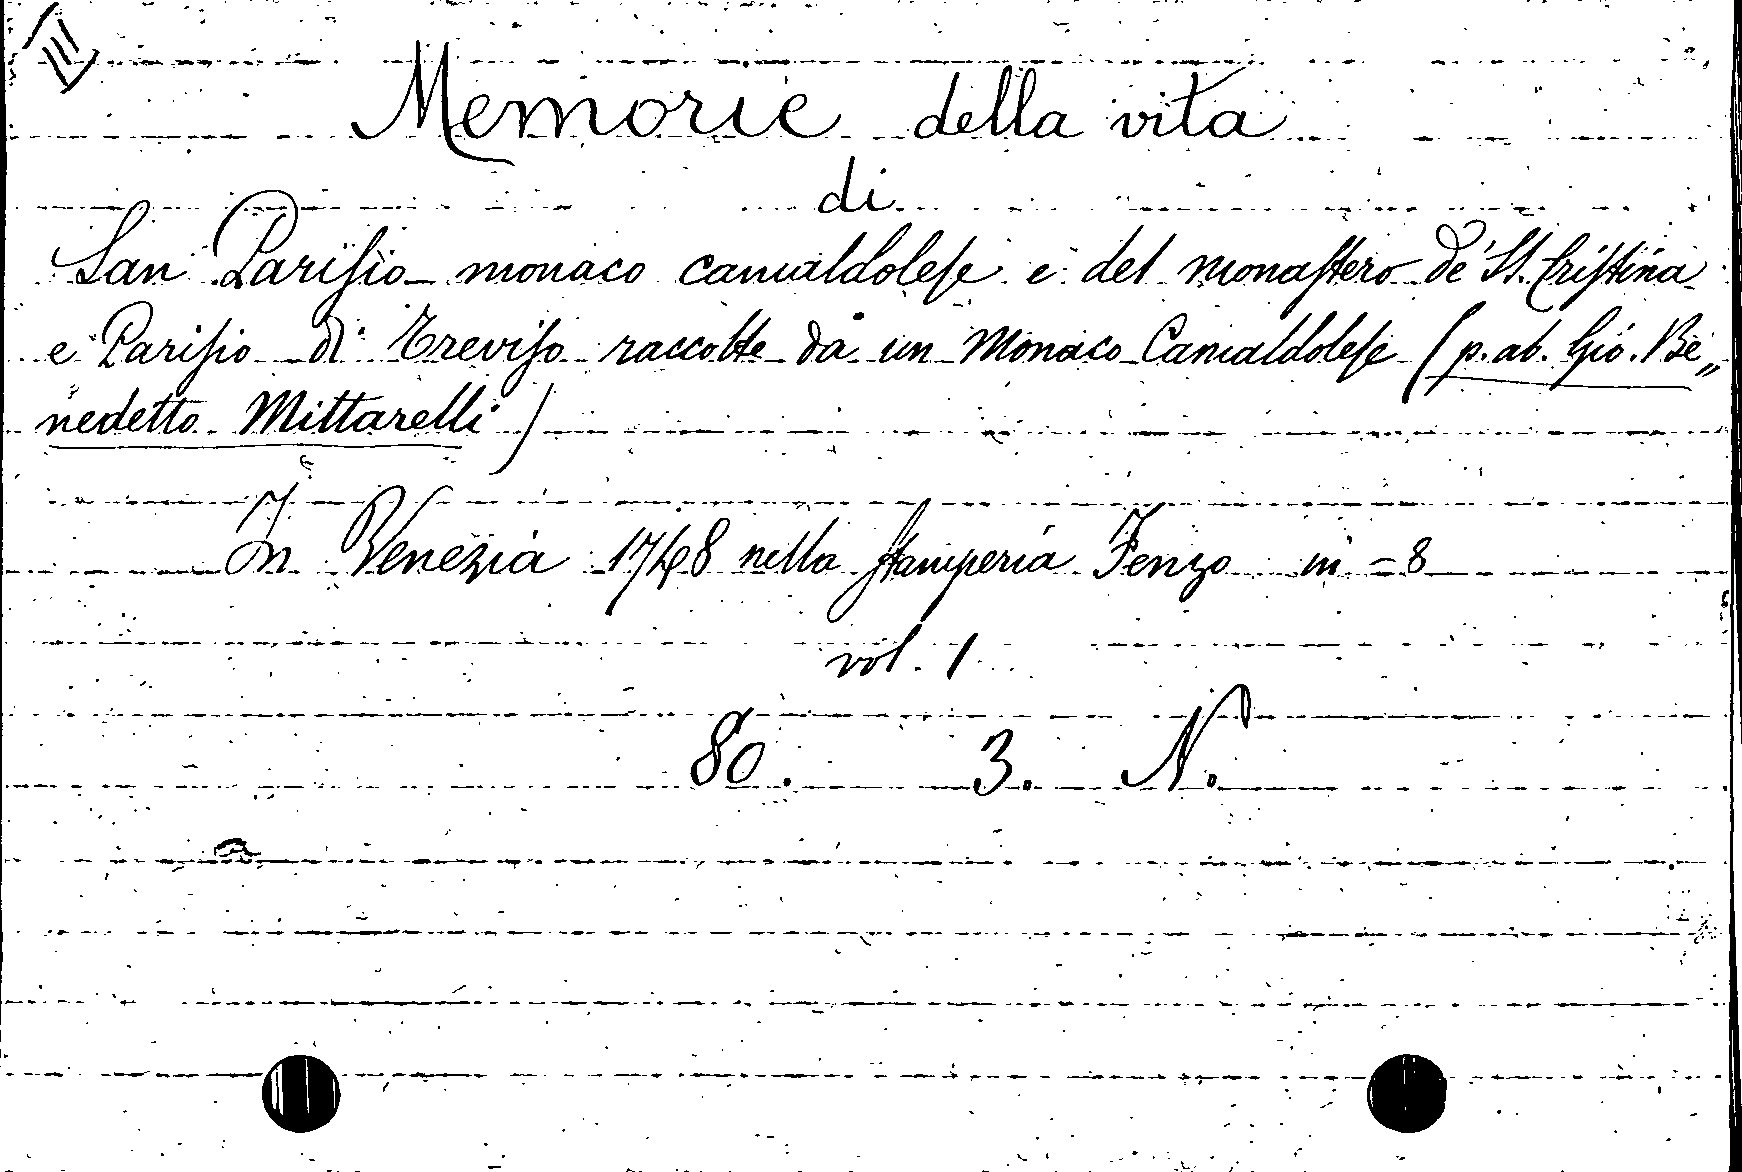 III
Memorie della vita
di
San Parisio monaco camaldolese e del monastero de' St. Cristina
e Parisio di Treviso raccolte da un Monaco Camaldolese (p. ab. Gio. Be„
nedetto Mittarelli)
In Venezia 1748 nella stamperia Fenzo in = 8
vol. 1
80. 3. N.